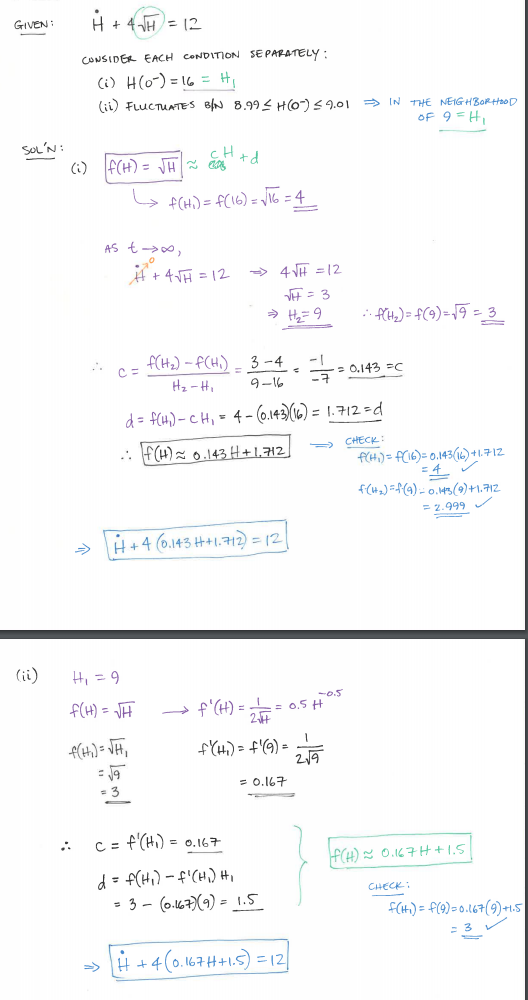 GIVEN: Ḣ + 4√H = 12
CONSIDER EACH CONDITION SEPARATELY:
(i) H(0⁻) = 16 = H₁
(ii) FLUCTUATES B/N 8.99 ≤ H(0⁻) ≤ 9.01 ⇒ IN THE NEIGHBORHOOD
OF 9 = H₁
SOL'N:
(i) f(H) = √H ≈ cH + d
↳ f(H₁) = f(16) = √16 = 4
AS t → ∞,
Ḣ→0 + 4√H = 12 ⇒ 4√H = 12
√H = 3
⇒ H₂ = 9 ∴ f(H₂) = f(9) = √9 = 3
∴ c = (f(H₂) - f(H₁))/(H₂ - H₁) = (3 - 4)/(9 - 16) = -1/-7 = 0.143 = c
d = f(H₁) - cH₁ = 4 - (0.143)(16) = 1.712 = d
∴ f(H) ≈ 0.143H + 1.712 ⇒ CHECK:
f(H₁) = f(16) = 0.143(16) + 1.712
= 4 ✓
f(H₂) = f(9) = 0.143(9) + 1.712
= 2.999 ✓
⇒ Ḣ + 4(0.143H + 1.712) = 12
(ii) H₁ = 9
f(H) = √H → f'(H) = 1/(2√H) = 0.5 H^-0.5
f(H₁) = √H₁ f'(H₁) = f'(9) = 1/(2√9)
= √9
= 3 = 0.167
∴ c = f'(H₁) = 0.167
d = f(H₁) - f'(H₁) H₁
= 3 - (0.167)(9) = 1.5
f(H) ≈ 0.167H + 1.5
CHECK:
f(H₁) = f(9) = 0.167(9) + 1.5
= 3 ✓
⇒ Ḣ + 4(0.167H + 1.5) = 12